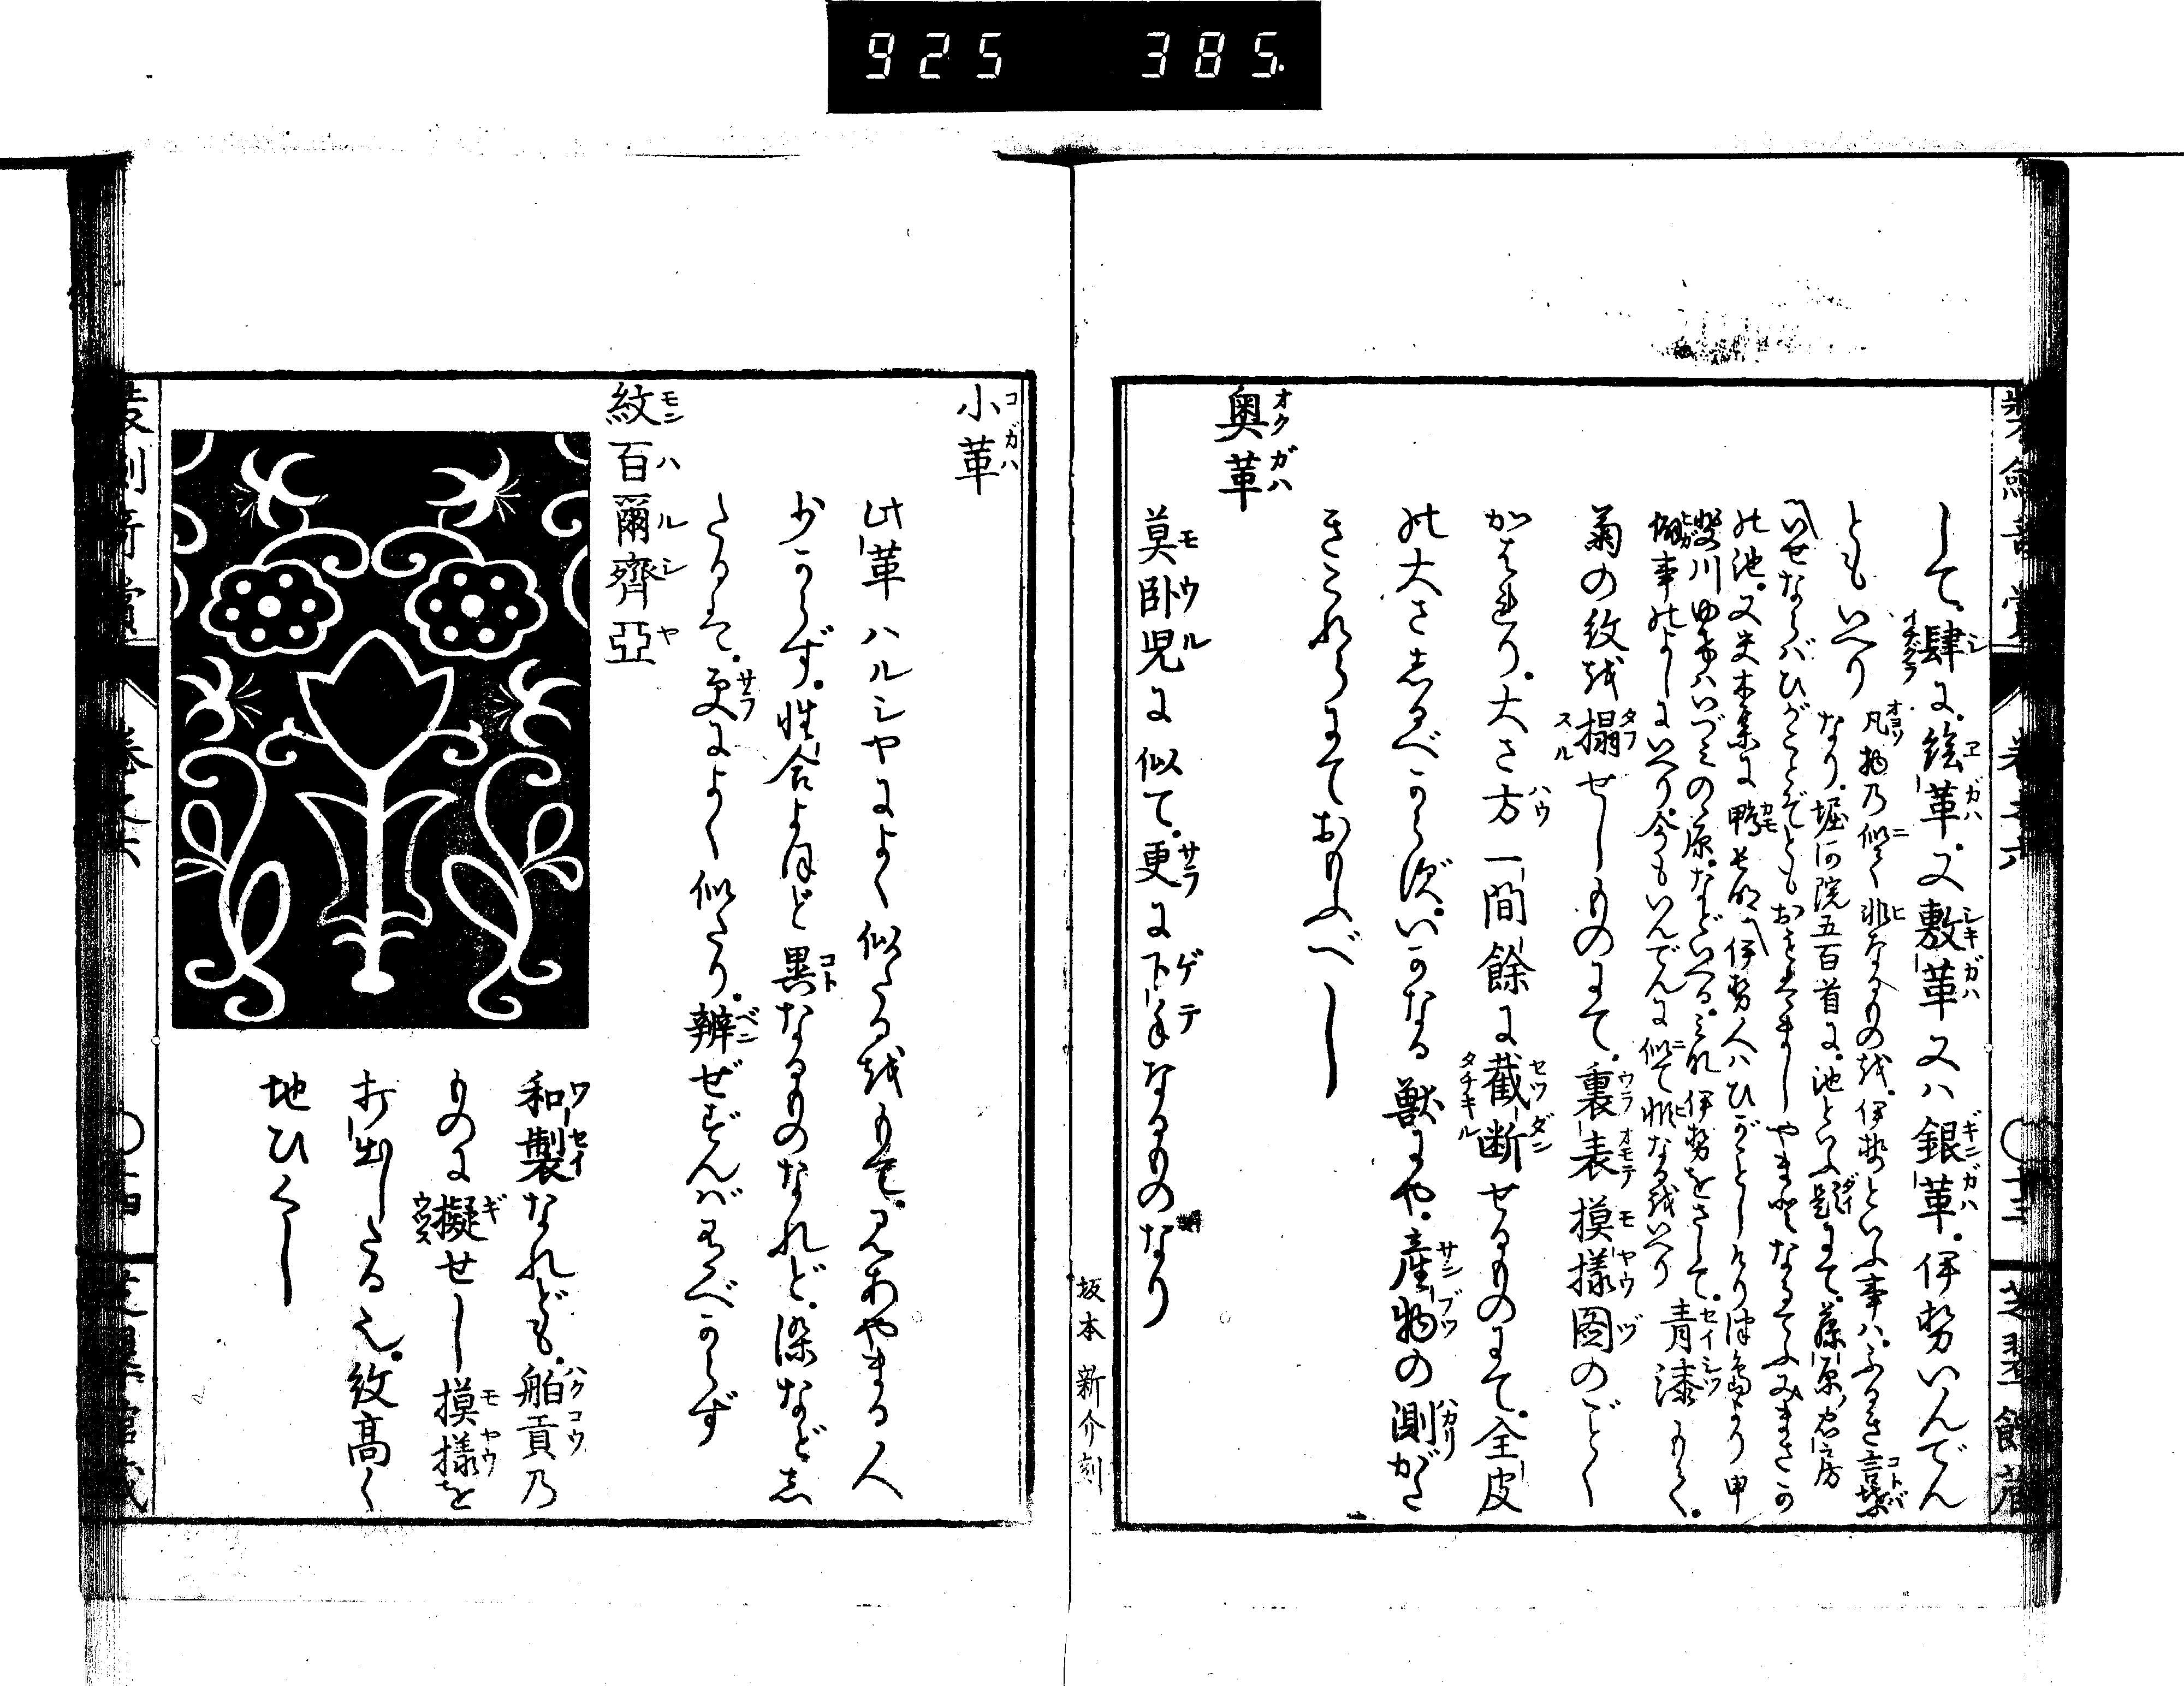 925 385.
して。肆に。絵革。又敷革又ハ銀革。伊勢いんでん
ともいへり
凡物乃似て非なるものを。伊勢といふ事ハ。ふるき言葉
なり。堀河院五百首に。池といふ題にて。藤原
いせならバひがことぞとも
の池。又夫木集に鴨長明 伊勢人ハひがことしけり津島より
川ゆけバいづミの原。などいへる。ミな伊勢をさして。
僻事のよしにいへり。今もいんでんに似て非なるをいへり
青漆もやく。
菊の紋を搨せしものにて。裏表摸樣図のごとく
かはれり。大さ方一間餘に截断せるものにて。全皮
の大さしるべからず。いかなる獣にや。産物の測がた
きこれらにておもふべし
奥革
莫臥児に似て。更に下手なるものなり
坂本新介刻
小革
此革ハルシヤによく似たるをもて。見あやまる人
少からず。性合よほど異なるものなれど。染などし
たるは。更によく似たり。辨ぜずんバあるべからず
紋百爾齊亞
和製なれども。舶貢乃
ものに擬せし摸樣を
打出したる也。紋高く
地ひくし